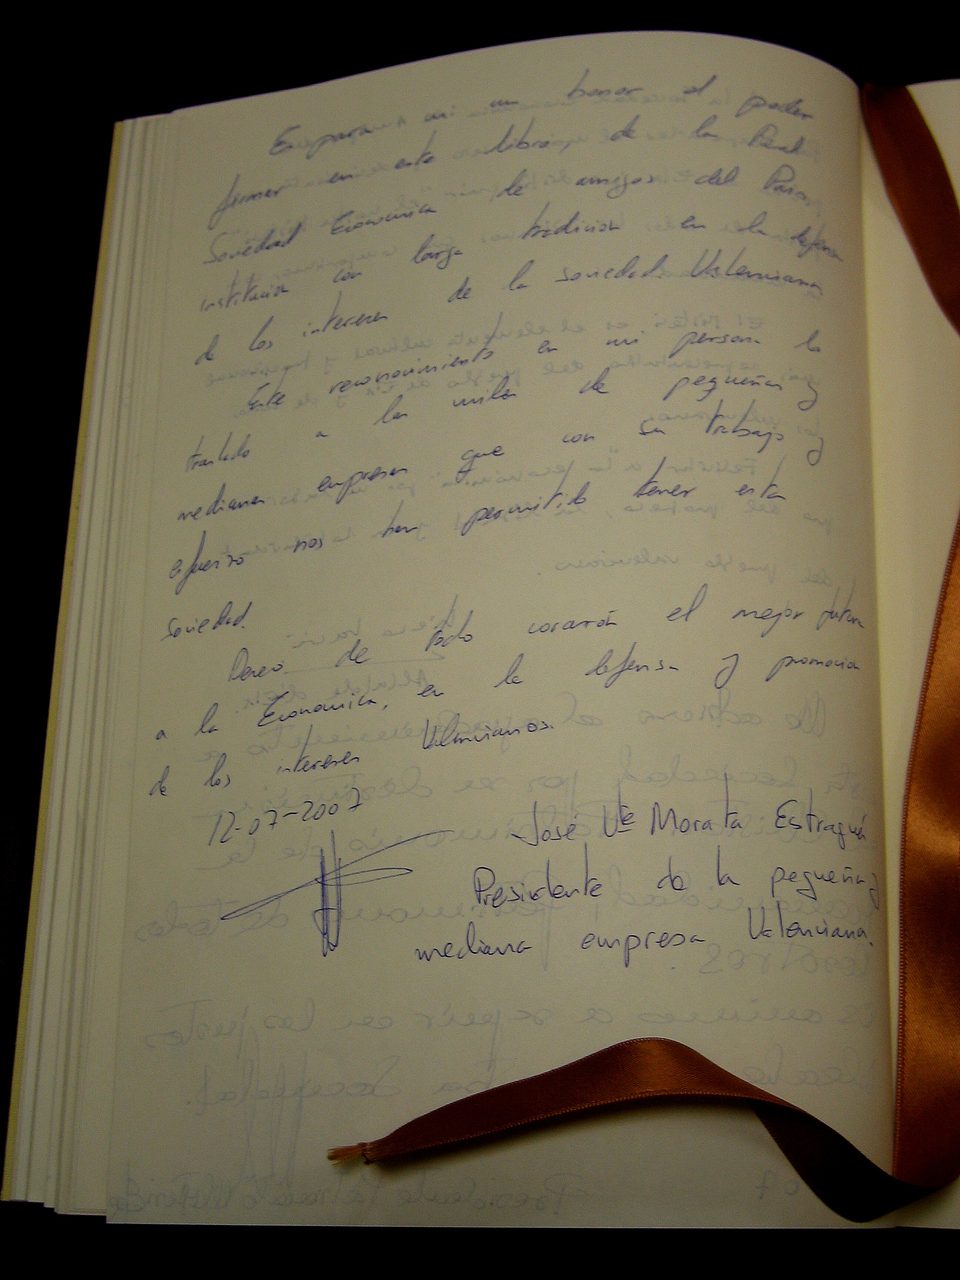 Es para mi un honor el poder
firmar en este libro de la Real
Sociedad Economica de amigos del Pais,
institución con larga tradición en la defensa
de los intereses de la sociedad Valenciana
Este reconocimiento en mi persona lo
traslado a los miles de pequeñas y
medianas empresas que con su trabajo y
esfuerzo nos han permitido tener esta
Sociedad.
Deseo de todo corazón el mejor futuro
a la Económica, en la defensa y promoción
de los intereses Valencianos.
12-07-2007
José Vte Morata Estragués
Presidente de la pequeña y
mediana empresa Valenciana.